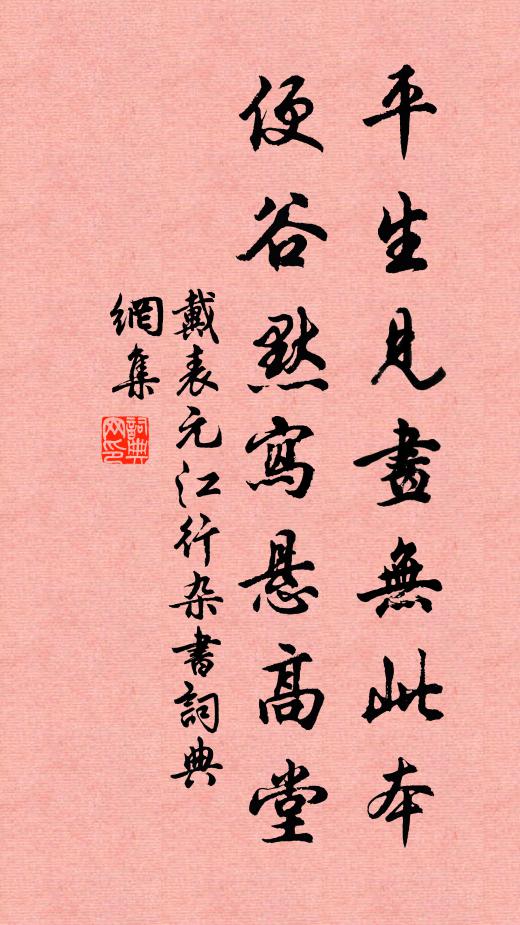 平生見畫無此本
便谷默寫悬高堂
戴表元江行杂書詞典
網集
詞典
网印